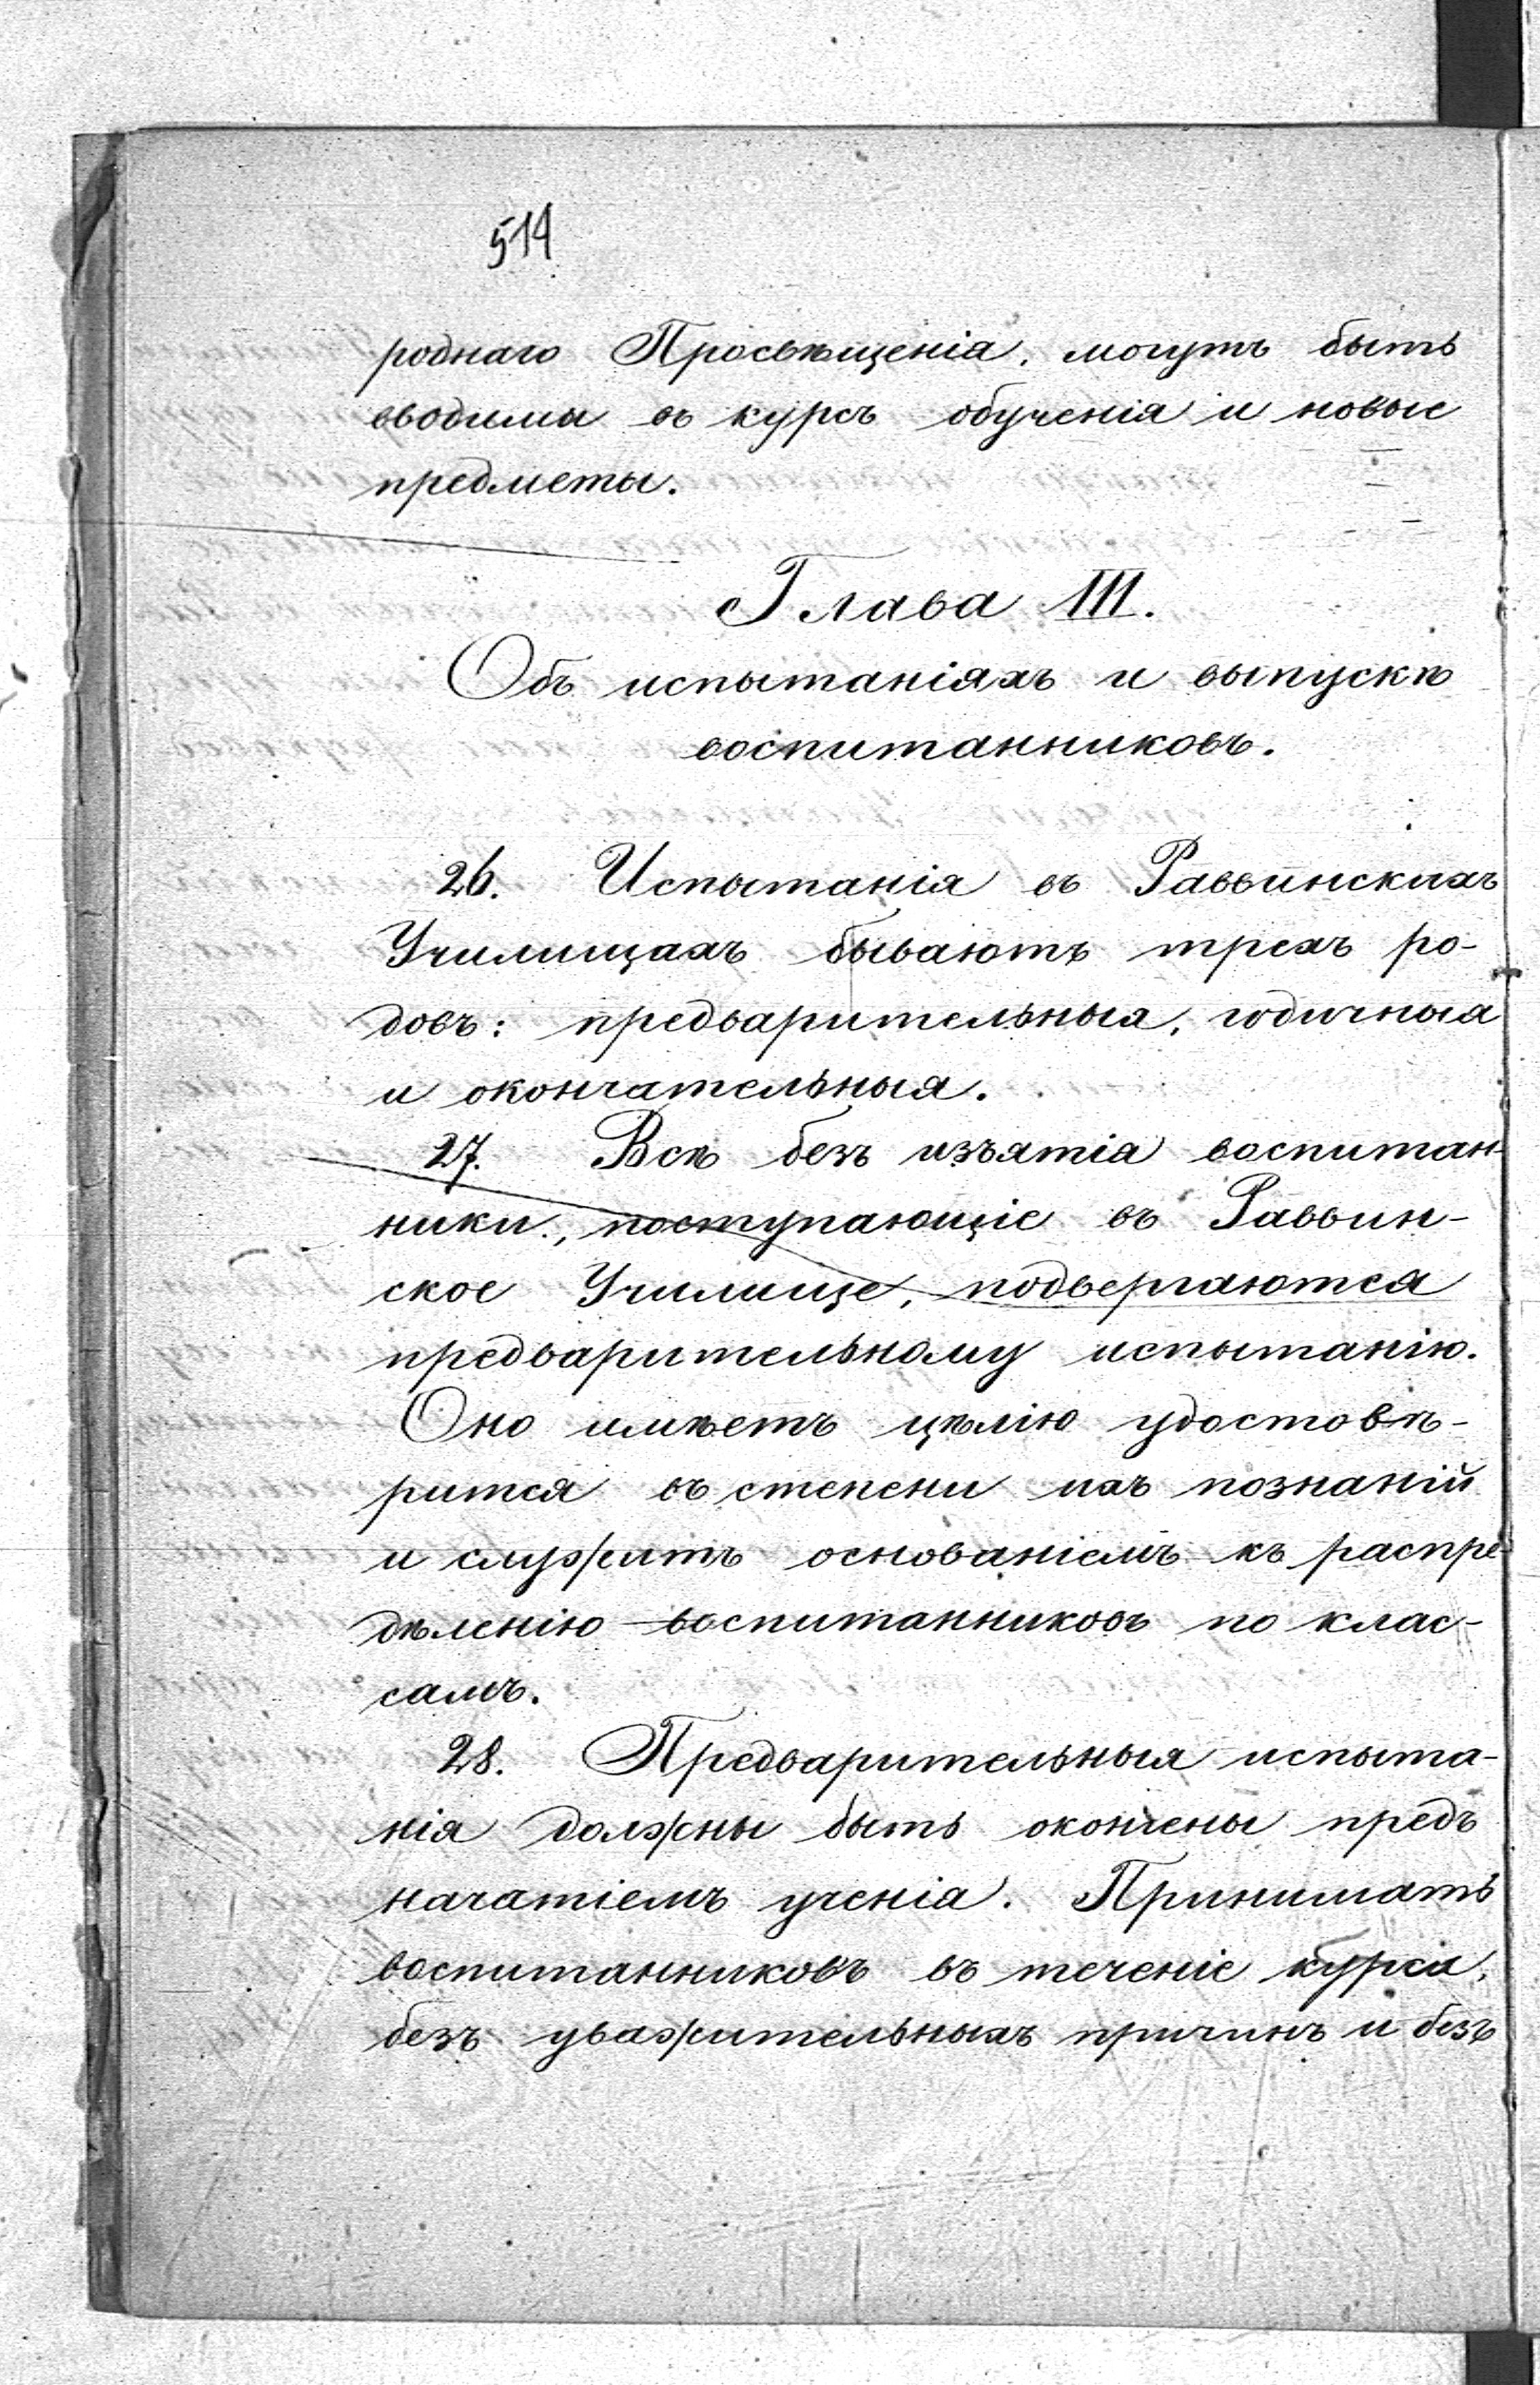 514
роднаго Просвѣщенія, могутъ быть
вводимы въ курсъ обученія и новые
предметы.
Глава III.
Объ испытаніяхъ и выпускѣ
воспитанниковъ.
26. Испытанія въ Раввинскихъ
Училищахъ бываютъ трехъ ро-
довъ: предварительныя, годичныя
и окончательныя.
27. Всѣ безъ изъятія воспитан-
ники, поступающіе въ Раввин-
ское Училище, подвергаются
предварительному испытанію.
Оно имѣетъ цѣлію удостовѣ-
рится въ степени ихъ познаній
и служитъ основаніемъ къ распре-
дѣленію воспитанниковъ по клас-
самъ.
28. Предварительныя испыта-
нія должны быть окончены предъ
начатіемъ ученія. Принимать
воспитанниковъ въ теченіе курса,
безъ уважительныхъ причинъ и безъ